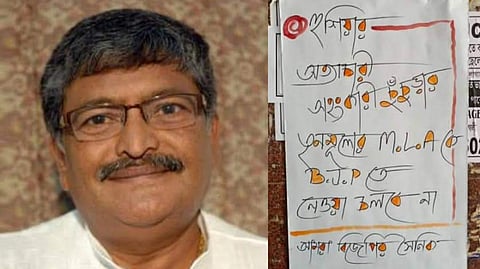 হুশিয়ার
অত্যাচারী
অহংকারী
তৃনমূলের M.L.A কে
B.J.P তে
নেওয়া চলবে না
আমরা বিজেপির সৈনিক